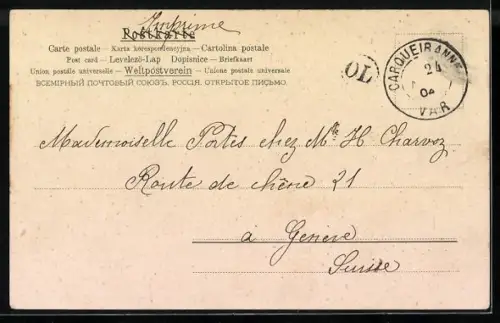 Imprimé
Postkarte
Carte postale — Karta korespondencyjna — Cartolina postale
Post card — Levelező-Lap Dopisnice — Briefkaart
Union postale universelle — Weltpostverein — Unione postale universale
ВСЕМІРНЫЙ ПОЧТОВЫЙ СОЮЗЪ. РОССІЯ. ОТКРЫТОЕ ПИСЬМО.
OL
CARQUEIRANNE
24
04
VAR
Mademoiselle Portés chez Mlle H Charvoz
Route de chêne 21
à Geneve
Suisse